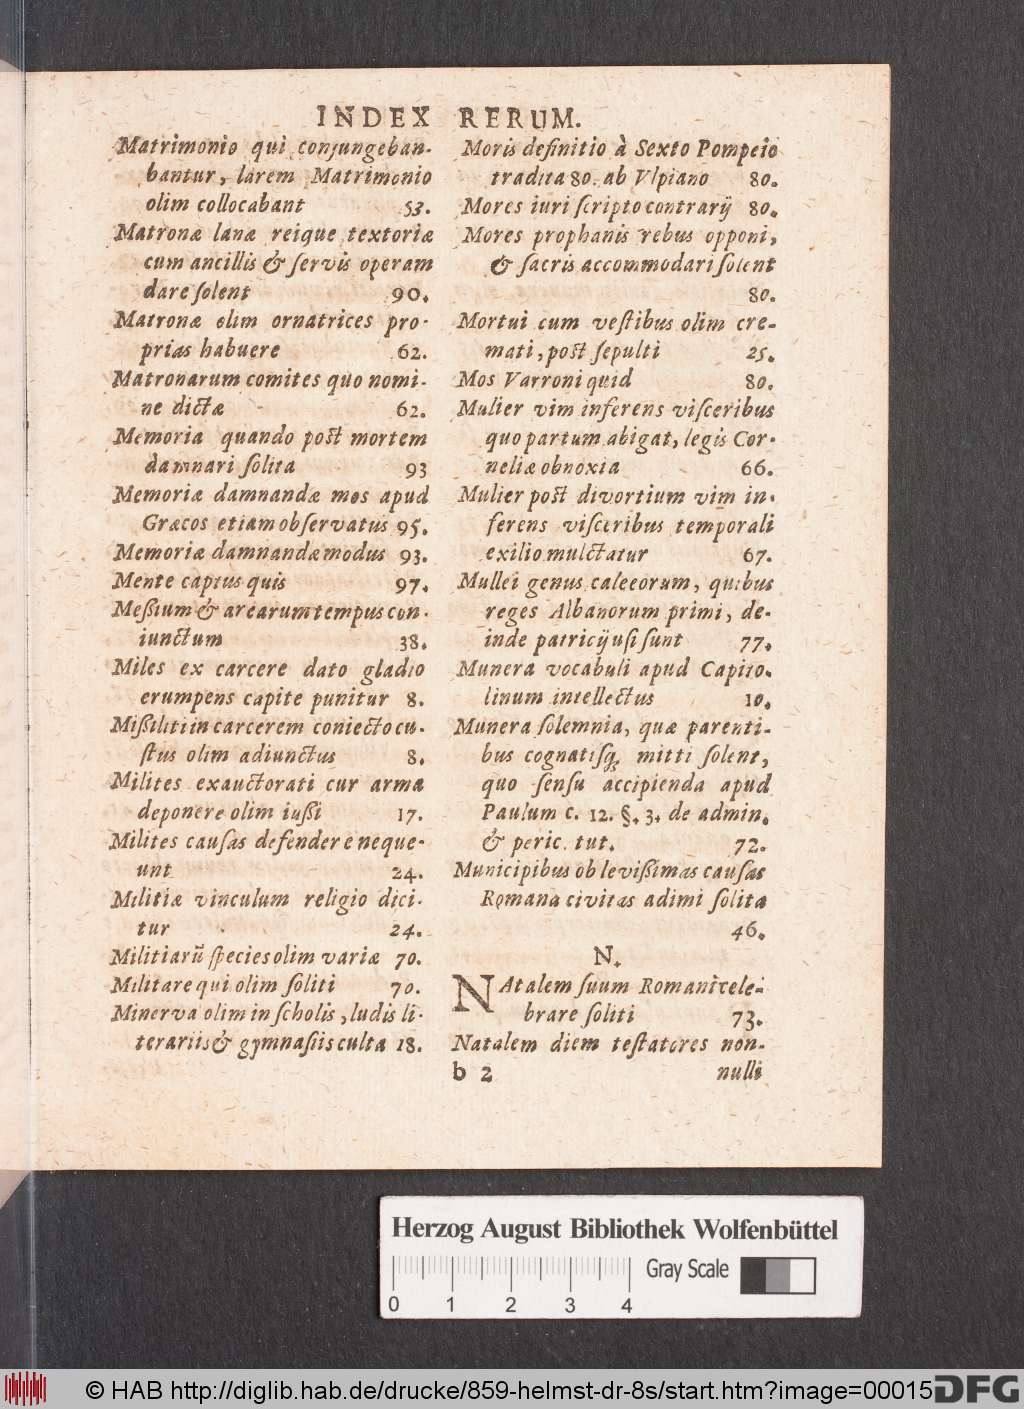 INDEX RERUM.
Matrimonio qui conjungeban-
bantur, larem Matrimonio
olim collocabant 53.
Matronæ lanæ reique textoriæ
cum ancillis & ſervis operam
dare ſolent 90.
Matronæ olim ornatrices pro-
prias habuere 62.
Matronarum comites quo nomi-
ne dictæ 62.
Memoria quando poſt mortem
damnari ſolita 93
Memoriæ damnandæ mos apud
Græcos etiam obſervatus 95.
Memoriæ damnandæ modus 93.
Mente captus quis 97.
Meßium & arearum tempus con-
iunctum 38.
Miles ex carcere dato gladio
erumpens capite punitur 8.
Mißiliti in carcerem coniecto cu-
ſtus olim adiunctus 8.
Milites exauctorati cur arma
deponere olim iußi 17.
Milites cauſas defendere neque-
unt 24.
Militiæ vinculum religio dici-
tur 24.
Militiarũ ſpecies olim variæ 70.
Militare qui olim ſoliti 70.
Minerva olim in ſcholis, ludis li-
terariis & gymnaſiis culta 18.
Moris definitio à Sexto Pompeio
tradita 80. ab Vlpiano 80.
Mores iuri ſcripto contrarij 80.
Mores prophanis rebus opponi,
& ſacris accommodari ſolent
80.
Mortui cum veſtibus olim cre-
mati, poſt ſepulti 25.
Mos Varroni quid 80.
Mulier vim inferens viſceribus
quo partum abigat, legis Cor-
neliæ obnoxia 66.
Mulier poſt divortium vim in-
ferens viſceribus temporali
exilio mulctatur 67.
Mullei genus calceorum, quibus
reges Albanorum primi, de-
inde patricij uſi ſunt 77.
Munera vocabuli apud Capito-
linum intellectus 10.
Munera ſolemnia, quæ parenti-
bus cognatiſq; mitti ſolent,
quo ſenſu accipienda apud
Paulum c. 12. §. 3. de admin.
& peric. tut. 72.
Municipibus ob levißimas cauſas
Romana civitas adimi ſolita
46.
N.
NAtalem ſuum Romani cele-
brare ſoliti 73.
Natalem diem teſtatores non-
b 2 nulli
Herzog August Bibliothek Wolfenbüttel
Gray Scale
0 1 2 3 4
© HAB http://diglib.hab.de/drucke/859-helmst-dr-8s/start.htm?image=00015
DFG